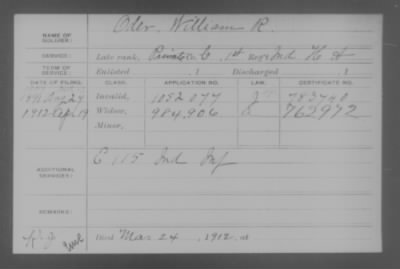 NAME OF SOLDIER: Oler, William R.
SERVICE: Late rank, Private Co C, 1st Reg't Ind H A
TERM OF SERVICE: Enlisted , 1 Discharged , 1
DATE OF FILING. CLASS. APPLICATION NO. LAW. CERTIFICATE NO.
1891 Aug 24 Invalid, 1052077 783740
1912 Apr 19 Widow, 984,906 762972
Minor,
ADDITIONAL SERVICES: C 115 Ind Inf
REMARKS:
Died Mar 24, 1912, at